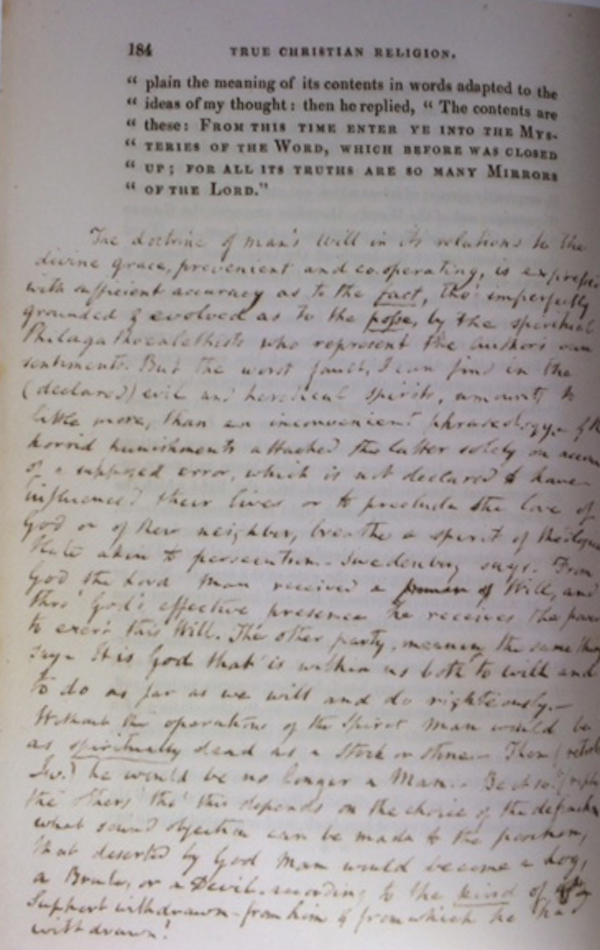 184 TRUE CHRISTIAN RELIGION.
“ plain the meaning of its contents in words adapted to the
“ ideas of my thought: then he replied, “ The contents are
“ these: FROM THIS TIME ENTER YE INTO THE MYS-
“ TERIES OF THE WORD, WHICH BEFORE WAS CLOSED
“ UP; FOR ALL ITS TRUTHS ARE SO MANY MIRRORS
“ OF THE LORD.”
The doctrine of man's Will in its relations to the
divine grace, prevenient and co-operating, is express
with sufficient accuracy as to the fact, tho' imperfectly
grounded & evolved as to the posse, by the spiritual
Philagathocalethists who represent the author's own
sentiments. But the worst fault, I can find in the
(declared) evil and heretical spirits, amounts to
little more, than an inconvenient phraseology—& the
horrid punishments attached the latter solely on accou
of a supposed error, which is not declared to have
influenced their lives or to preclude the love of
God or of their neighbor, breathe a spirit of theolog
Hate akin to persecution. Swedenborg says: From
God the Lord Man received a Will, and
thro' God's effective presence he receives the power
to exert this Will. The other party, meaning the same thing
say— It is God that is within us both to will and
to do as far as we will and do righteously.—
Without the operations of the Spirit Man would be
as spiritually dead as a Stock or stone.— Then (retort
Sw.) he would be no longer a Man.— Be it so! (reply
the others) tho' this depends on the choice of the definition
what sound objection can be made to the position,
that deserted by God Man would become a dog,
a Brute, or a Devil, according to the kind of
Support withdrawn from him & from which he ha
withdrawn!